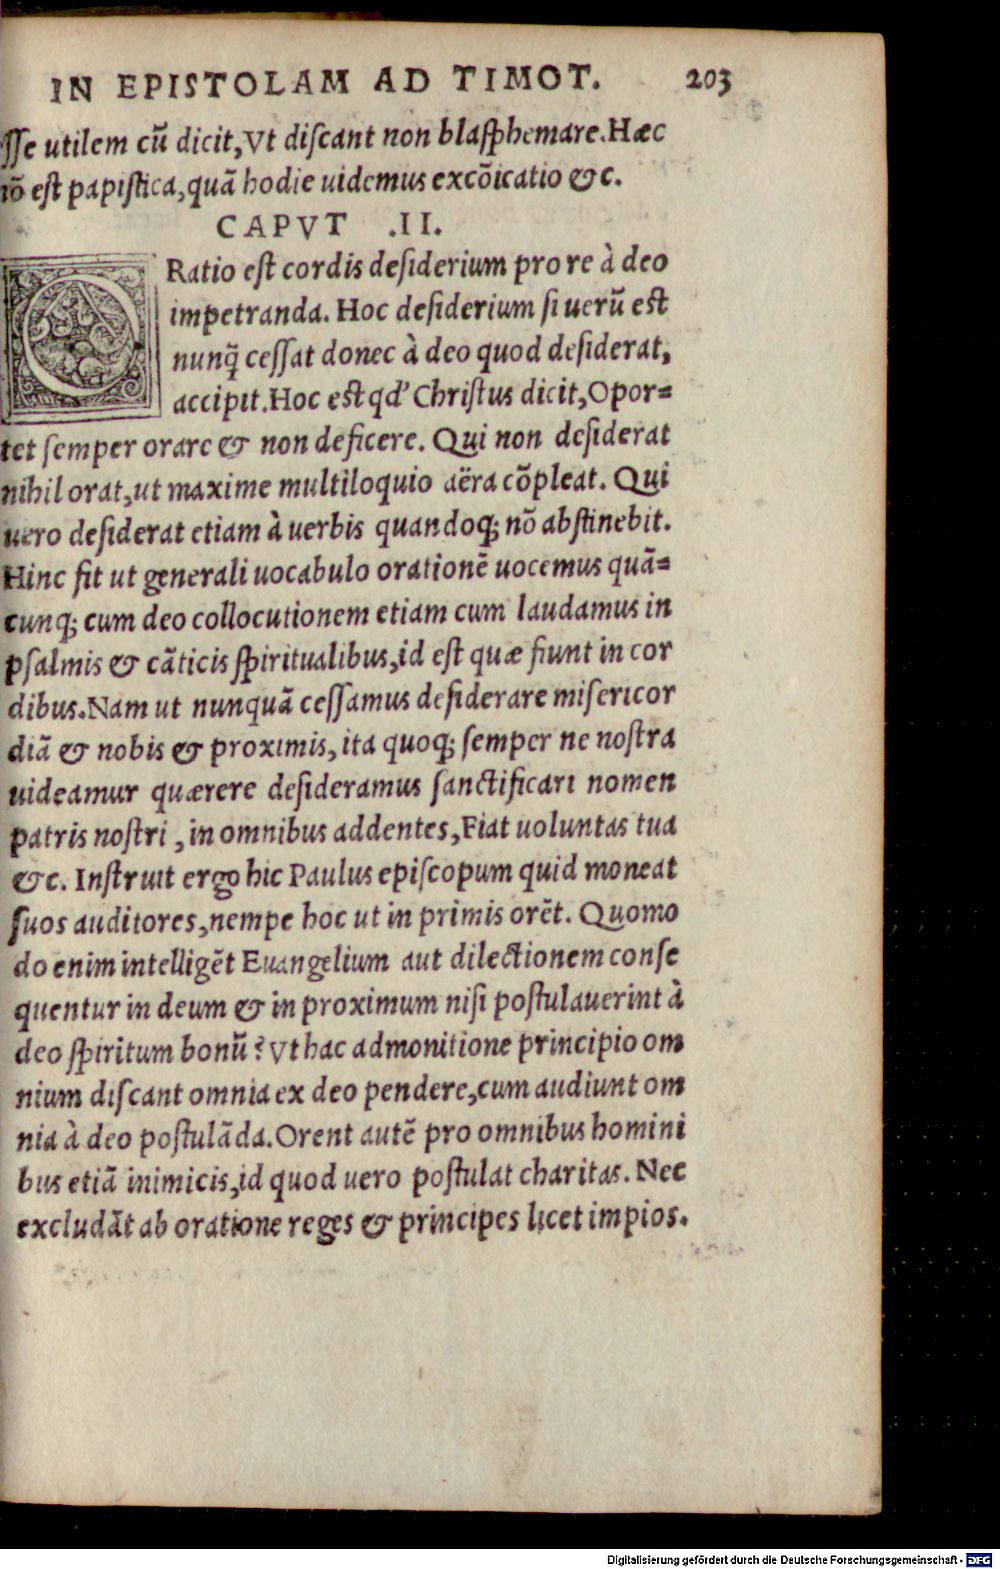 IN EPISTOLAM AD TIMOT. 203
ſſe utilem cū dicit, Vt diſcant non blaſphemare. Hæc
eſt papiſtica, quā hodie uidemus excōicatio &c.
CAPVT .II.
ORatio eſt cordis deſiderium pro re à deo
impetranda. Hoc deſiderium ſi uerū eſt
nunq̄ ceſſat donec à deo quod deſiderat,
accipit. Hoc eſt qd' Chriſtus dicit, Opor=
tet ſemper orare & non deficere. Qui non deſiderat
nihil orat, ut maxime multiloquio aëra cōpleat. Qui
uero deſiderat etiam à uerbis quandoq; nō abſtinebit.
Hinc fit ut generali uocabulo orationē uocemus quā=
cunq; cum deo collocutionem etiam cum laudamus in
pſalmis & cāticis ſpiritualibus, id eſt quæ fiunt in cor
dibus. Nam ut nunquā ceſſamus deſiderare miſericor
diā & nobis & proximis, ita quoq; ſemper ne noſtra
uideamur quærere deſideramus ſanctificari nomen
patris noſtri, in omnibus addentes, Fiat uoluntas tua
&c. Inſtruit ergo hic Paulus epiſcopum quid moneat
ſuos auditores, nempe hoc ut in primis orēt. Quomo
do enim intelligēt Euangelium aut dilectionem conſe
quentur in deum & in proximum niſi poſtulauerint à
deo ſpiritum bonū? Vt hac admonitione principio om
nium diſcant omnia ex deo pendere, cum audiunt om
nia à deo poſtulāda. Orent autē pro omnibus homini
bus etiā inimicis, id quod uero poſtulat charitas. Nec
excludāt ab oratione reges & principes licet impios.
Digitalisierung gefördert durch die Deutsche Forschungsgemeinschaft - DFG